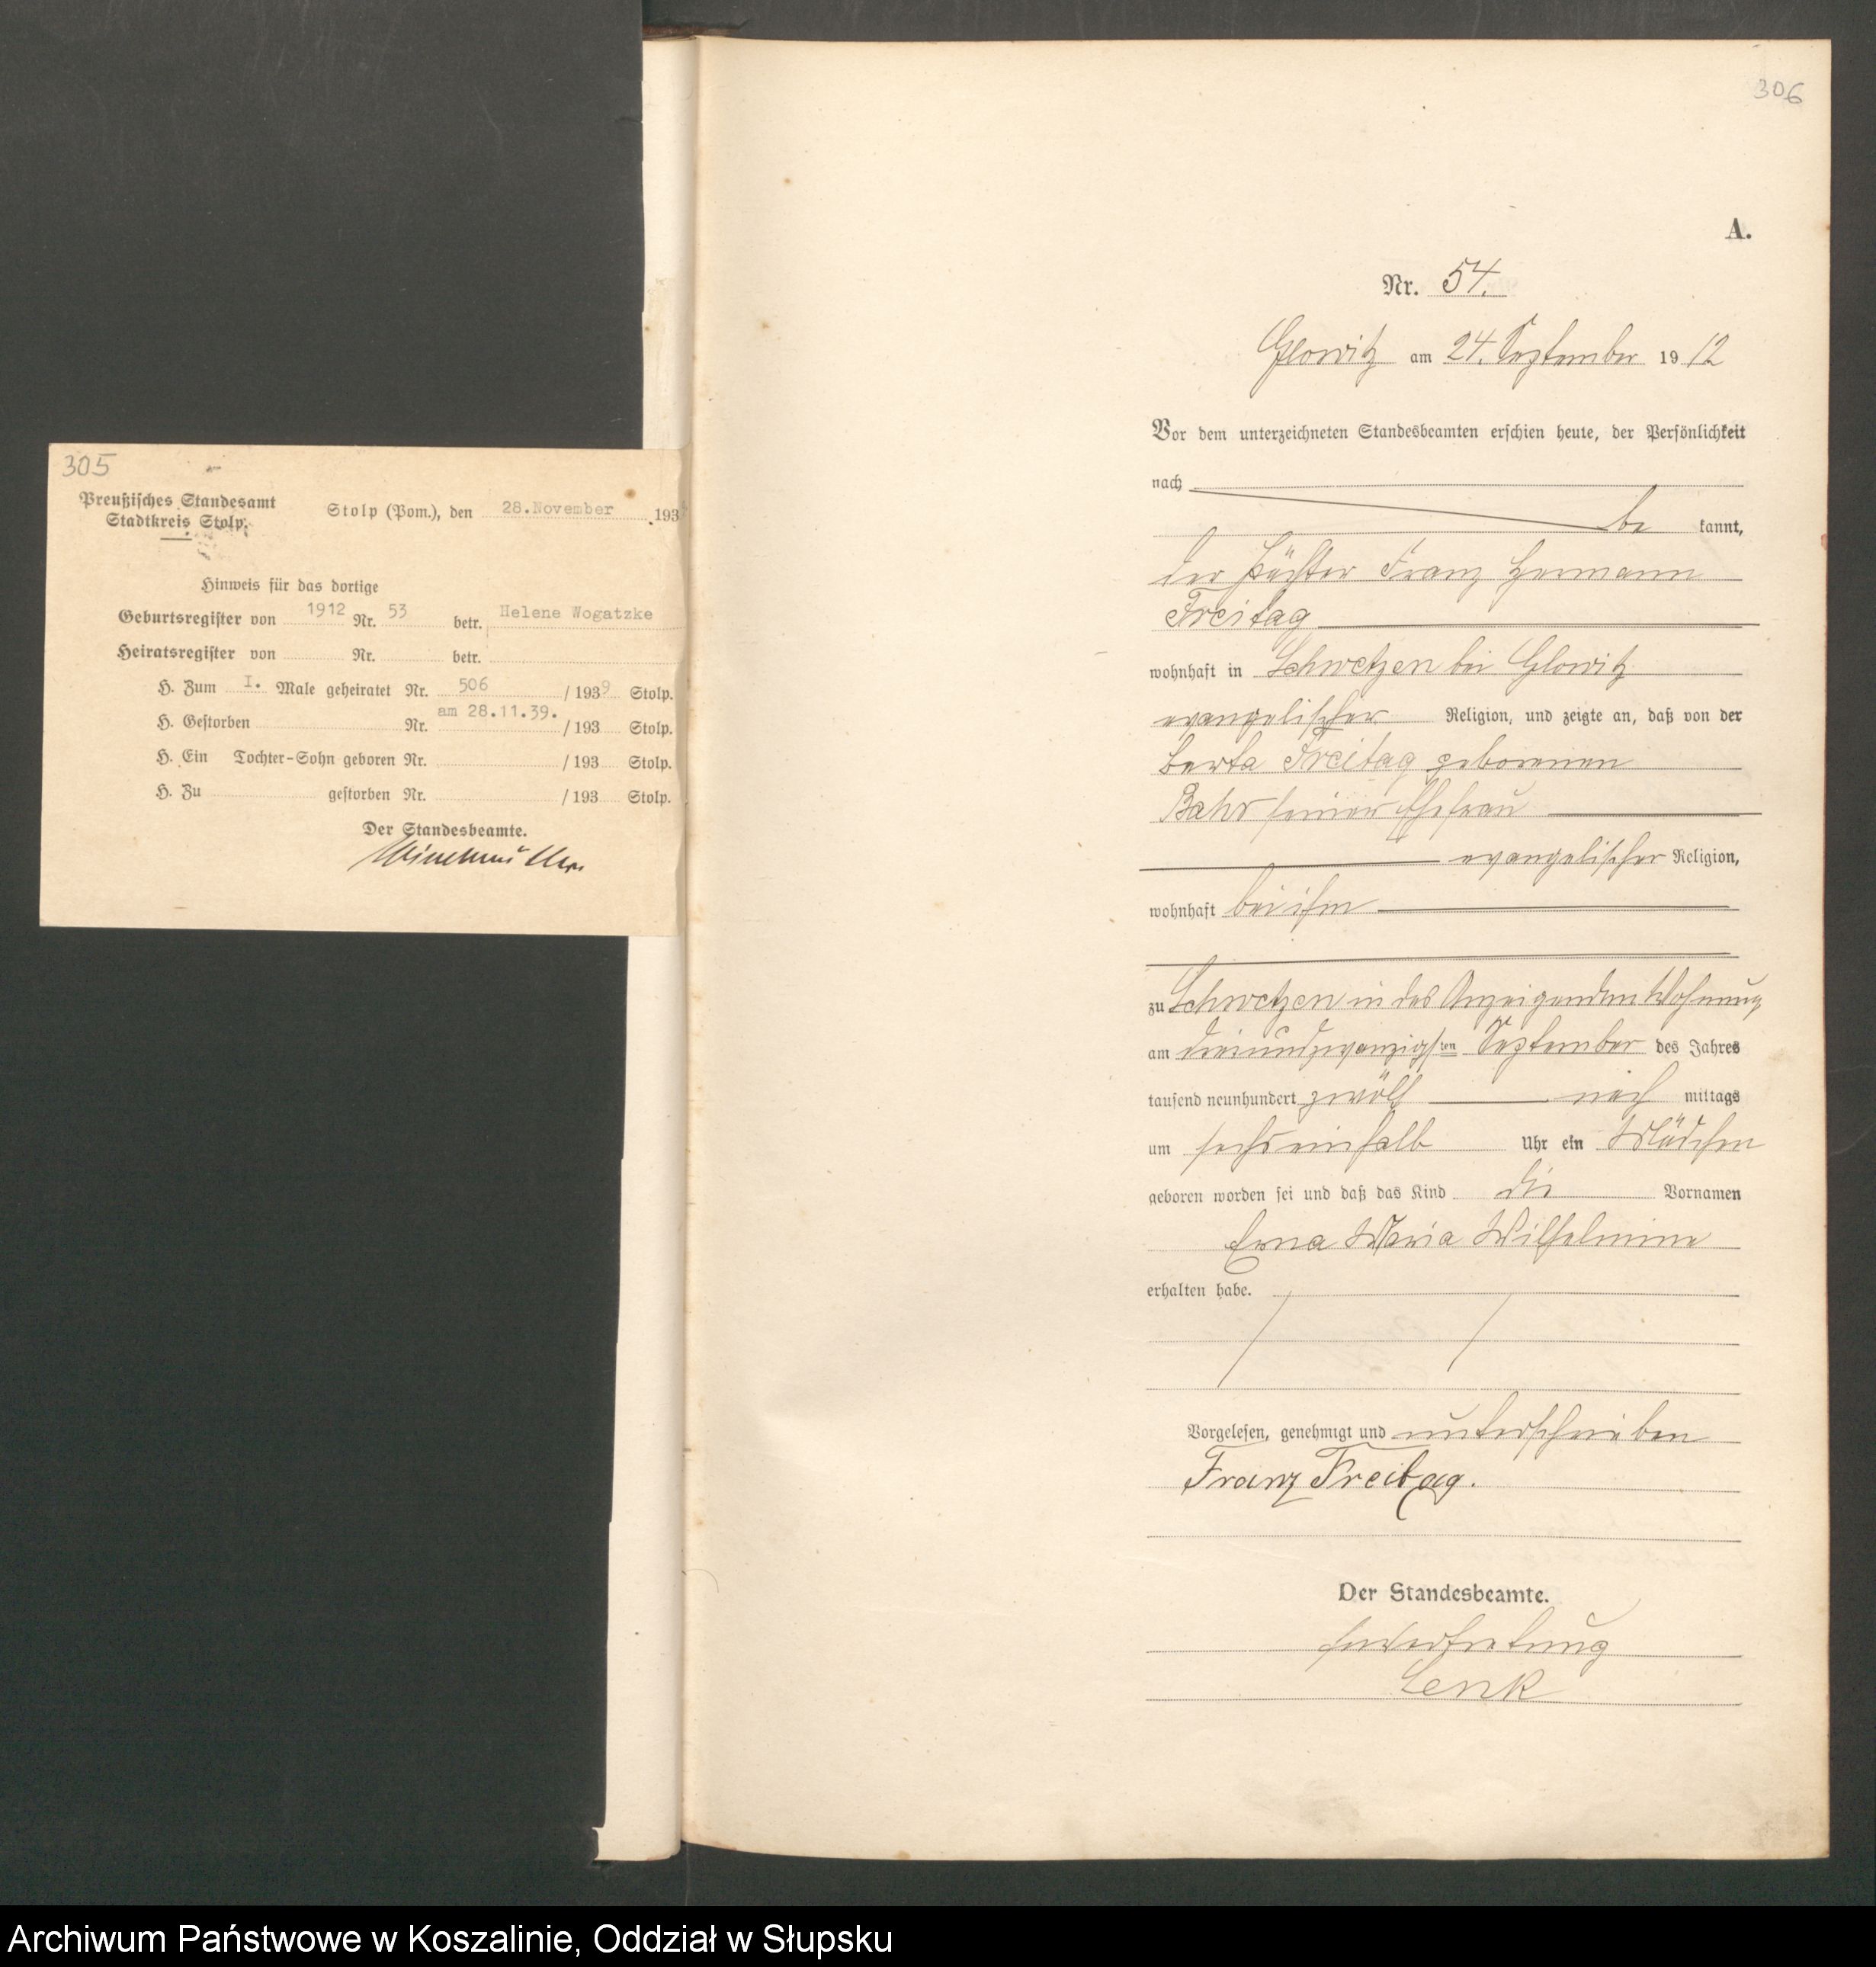 305
Preußisches Standesamt
Stadtkreis Stolp.
Stolp (Pom.), den 28.November 193
Hinweis für das dortige
Geburtsregister von 1912 Nr. 53 betr. Helene Wogatzke
Heiratsregister von Nr. betr.
H. Zum I. Male geheiratet Nr. 506 /1939 Stolp.
am 28.11.39.
H. Gestorben Nr. /193 Stolp.
H. Ein Tochter-Sohn geboren Nr. /193 Stolp.
H. Zu gestorben Nr. /193 Stolp.
Der Standesbeamte.
306
A.
Nr. 54.
Glowitz am 24. September 1912
Vor dem unterzeichneten Standesbeamten erschien heute, der Persönlichkeit
nach
be kannt,
der Pächter Franz Hermann
Freitag
wohnhaft in Schwetzen bei Glowitz
evangelischer Religion, und zeigte an, daß von der
Berta Freitag geborenen
Bahr seiner Ehefrau
evangelischer Religion,
wohnhaft bei ihm
zu Schwetzen in des Anzeigenden Wohnung
am dreiundzwanzigsten September des Jahres
tausend neunhundert zwölf nach mittags
um sechseinhalb Uhr ein Mädchen
geboren worden sei und daß das Kind die Vornamen
Erna Maria Wilhelmine
erhalten habe.
Vorgelesen, genehmigt und unterschrieben
Franz Freitag.
Der Standesbeamte.
In Vertretung
Lenk
Archiwum Państwowe w Koszalinie, Oddział w Słupsku